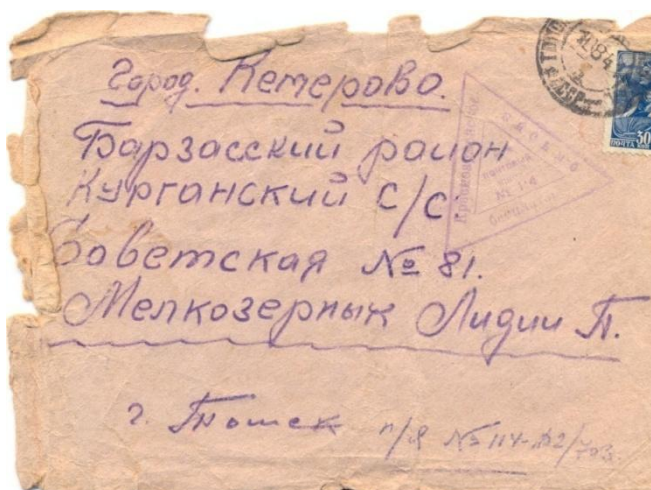 Город. Кемерово.
Барзасский район
Курганский с/с
Советская № 81.
Мелкозерных Лидии П.
г. Томск п/я №114-
30
ПОЧТА